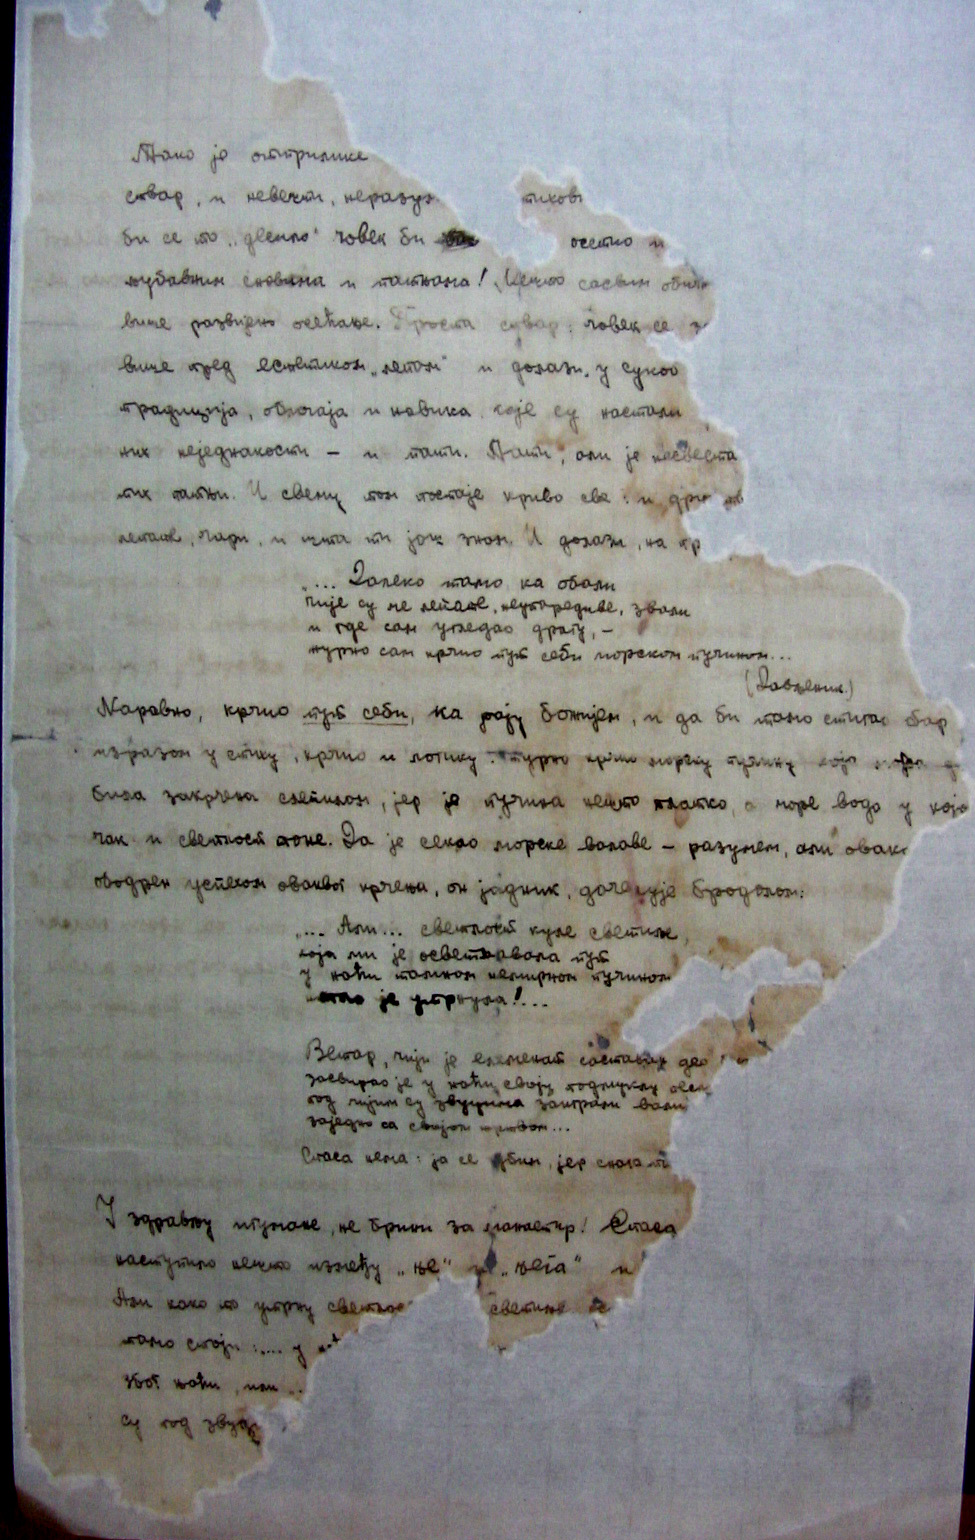 Тако је отприлике
ствар, и невешти, неразум
би се то „десило“ човек би осетио и
љубавним сновима и патњама! Нешто сасвим обич
више развијено осећање. Проста ствар: човек се
више пред естетиком „лепом“ и долази у сукоб
традиција, обичаја и навика које су настали
них неједнакости – и пати. Пати, али је несвеста
тих патњи. И свему том постаје криво све: и дру
лепоте, чари, и шта ти још знам. И долази, на пр
„... Далеко тамо ка обали
чије су ме лепоте, неупоредиве, звали
и где сам угледао драгу, –
журно сам крчио пут себи морском пучином...
(Дављеник)
Наравно, крчио пут себи, ка рају божијем, и да би тамо стигао бар
изразом у стиху, крчио и логику: журно крчио морску пучину
била закрчена слепилом, јер је пучина нешто глатко, а море вода у којо
чак и светлост тоне. Да је секао морске валове – разумем, али овак
ободрен успехом оваквог крчења, он јадник, дочекује бродолом:
„... Али... светлост куле светиље,
која ми је осветљавала пут
у ноћи тамном немирном пучином
је утрнула!...
Ветар, чији је елеменат саставни део
засвирао је у ноћи своју подмуклу
под чијим су звуцима заиграли вали
заједно са својом
Спаса нема: ја се убих, јер
У здрављу игумане, не брини за манастир! Спаса
наступило нешто између „ње“ и „њега“ и
Али како то утрну светлос светиље
тамо стоји:.... у
због ноћи, или ..
су под звуци